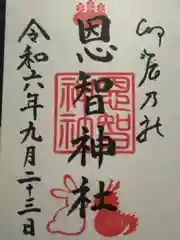 卯辰乃
恩智神社
恩智
神社
令和六年九月二十三日